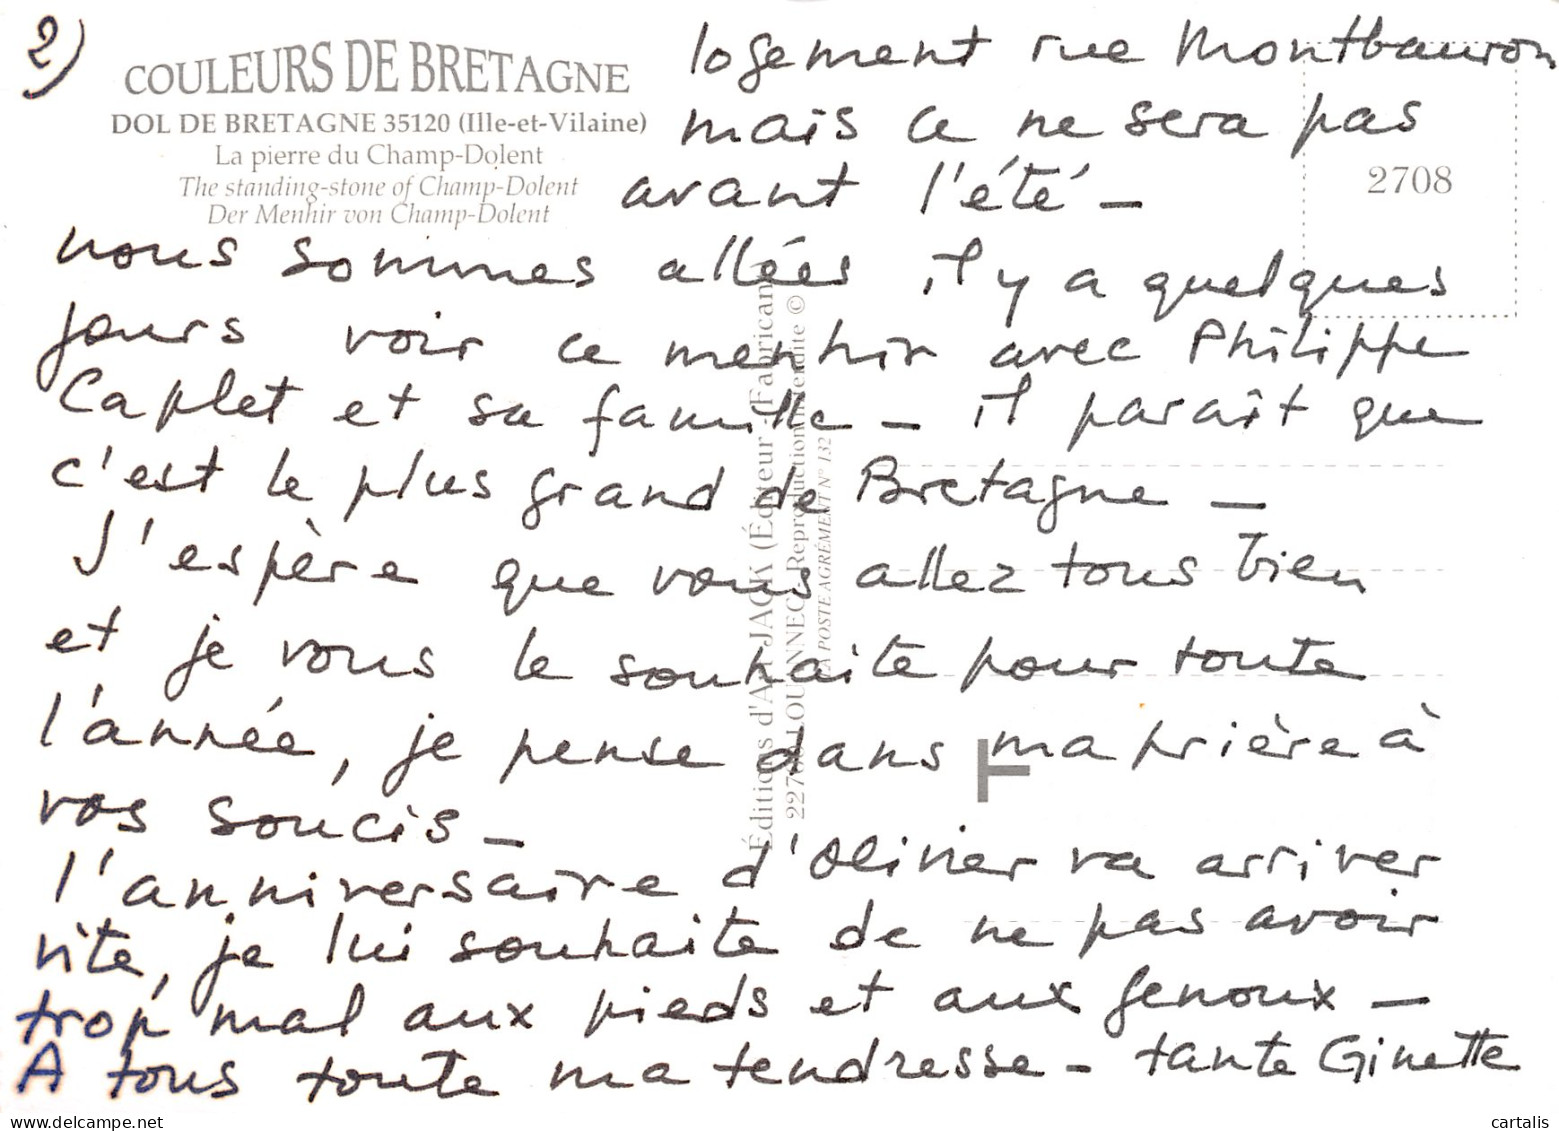 2)
COULEURS DE BRETAGNE
DOL DE BRETAGNE 35120 (Ille-et-Vilaine)
La pierre du Champ-Dolent
The standing-stone of Champ-Dolent
Der Menhir von Champ-Dolent
2708
logement rue Montbauron
mais ce ne sera pas
avant l'été -
nous sommes allées il y a quelques
jours voir ce menhir avec Philippe
Caplet et sa famille - il paraît que
c'est le plus grand de Bretagne -
J'espère que vous allez tous bien
et je vous le souhaite pour toute
l'année, je pense dans ma prière à
vos soucis -
l'anniversaire d'Olivier va arriver
vite, je lui souhaite de ne pas avoir
trop mal aux pieds et aux genoux -
A tous toute ma tendresse - tante Ginette
Éditions d'Art JACK (Éditeur - Fabricant)
LOUANNEC - Reproduction interdite ©
LA POSTE AGRÉMENT N° 132
www.delcampe.net
cartalis